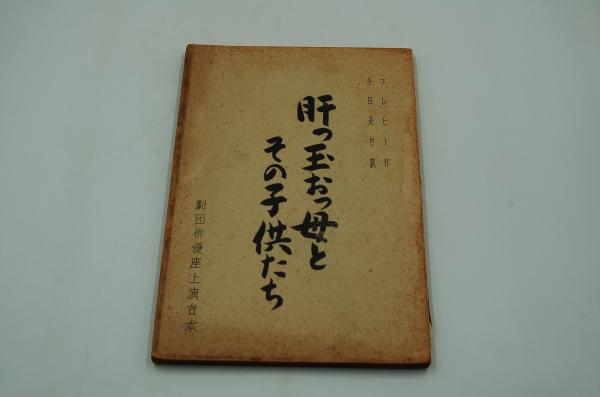 ブレヒト作
千田是也訳
肝っ玉おっ母と
その子供たち
劇団俳優座上演台本